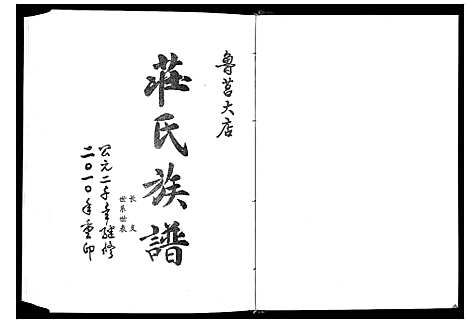 鲁莒大店
莊氏族譜
长支
世系世表
公元二千年續修
二〇一〇年重印